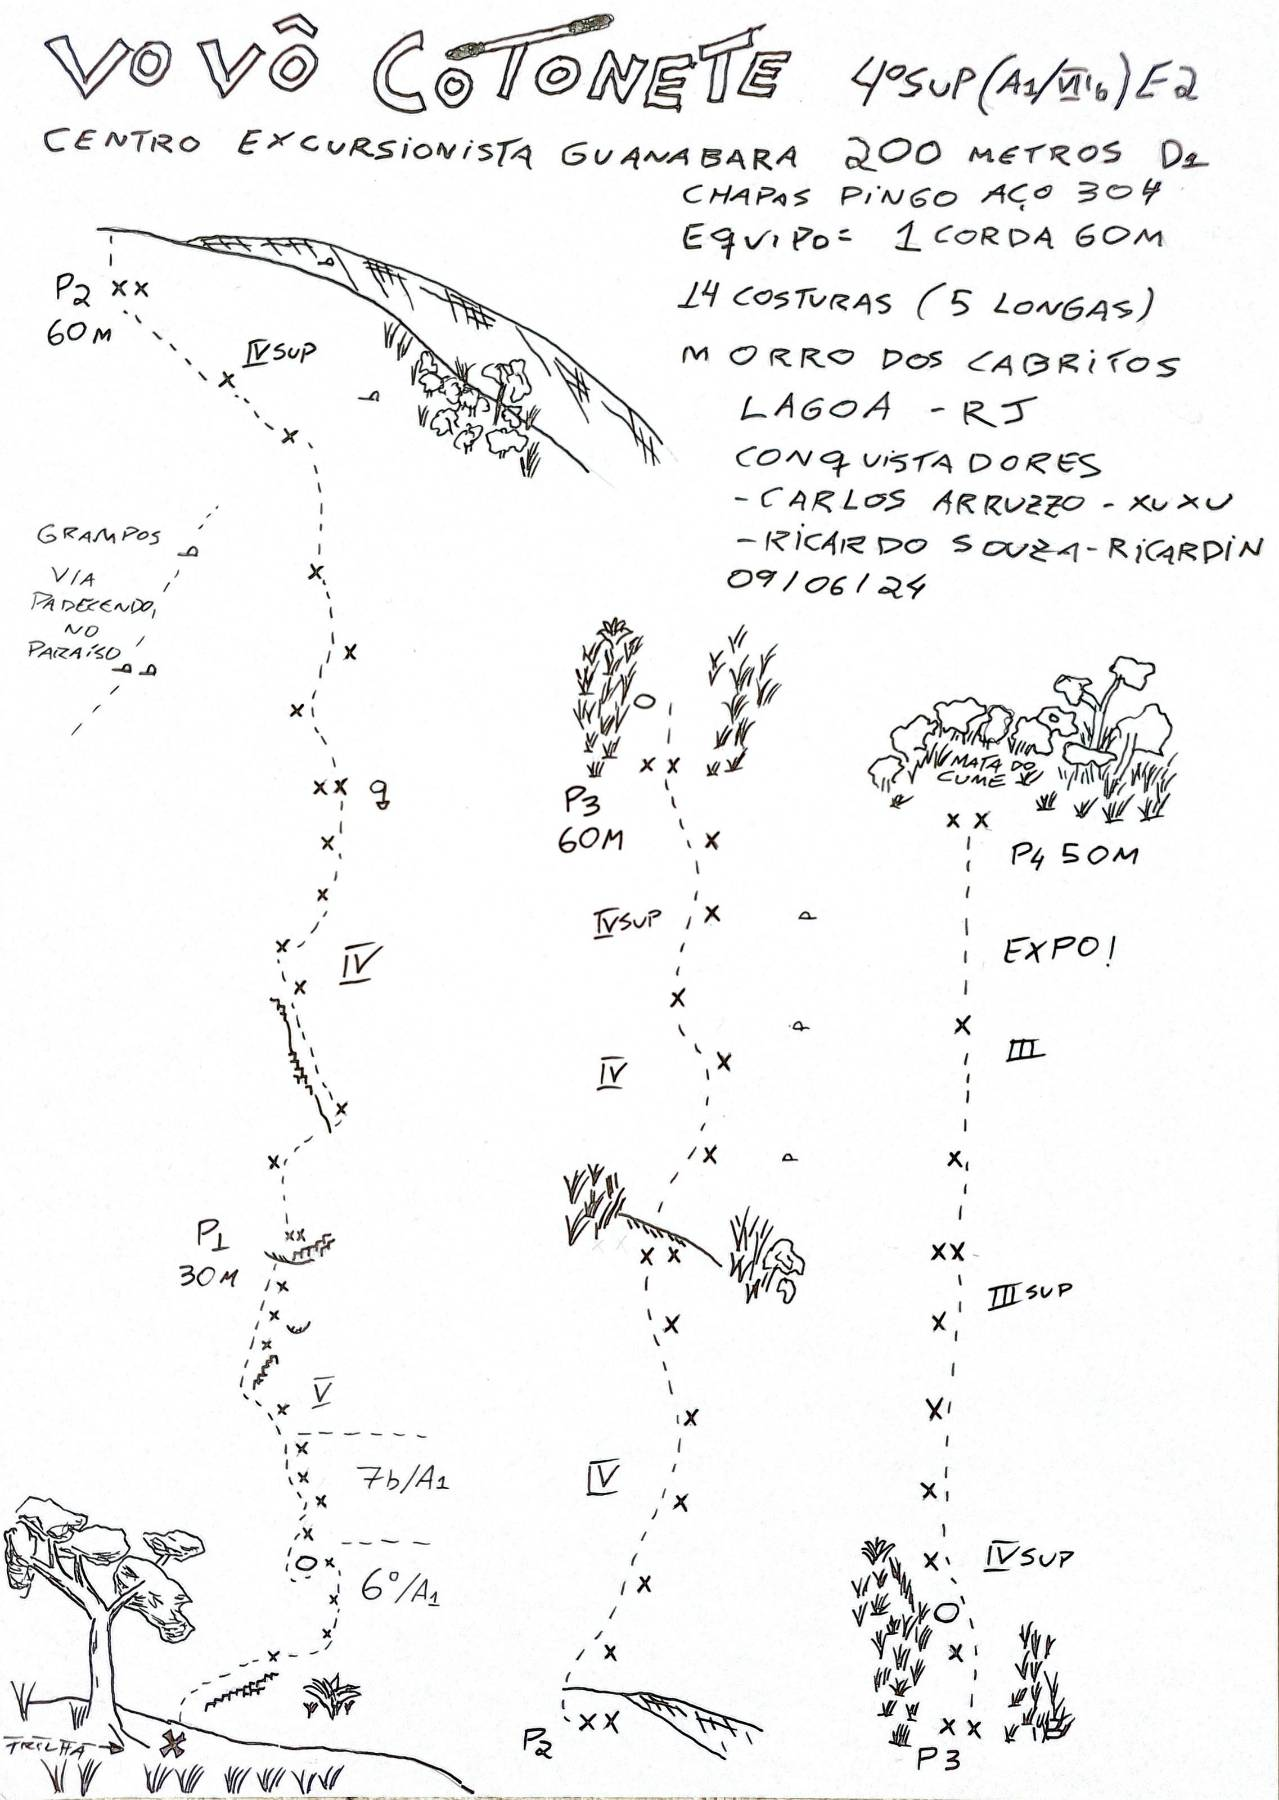 VOVÔ COTONETE 4ºSUP (A1/VIIb) E2
CENTRO EXCURSIONISTA GUANABARA 200 METROS D1
CHAPAS PINGO AÇO 304
EQUIPO= 1 CORDA 60M
14 COSTURAS (5 LONGAS)
MORRO DOS CABRITOS
LAGOA - RJ
CONQUISTADORES
- CARLOS ARRUZZO - XUXU
- RICARDO SOUZA - RICARDIN
09/06/24
P2
60M
IVSUP
GRAMPOS
VIA
PADECENDO
NO
PARAÍSO
IV
P1
30M
V
7b/A1
6º/A1
TRILHA
P3
60M
IVSUP
IV
IV
P2
MATA DO
CUME
P4 50M
EXPO!
III
IIISUP
IVSUP
P3